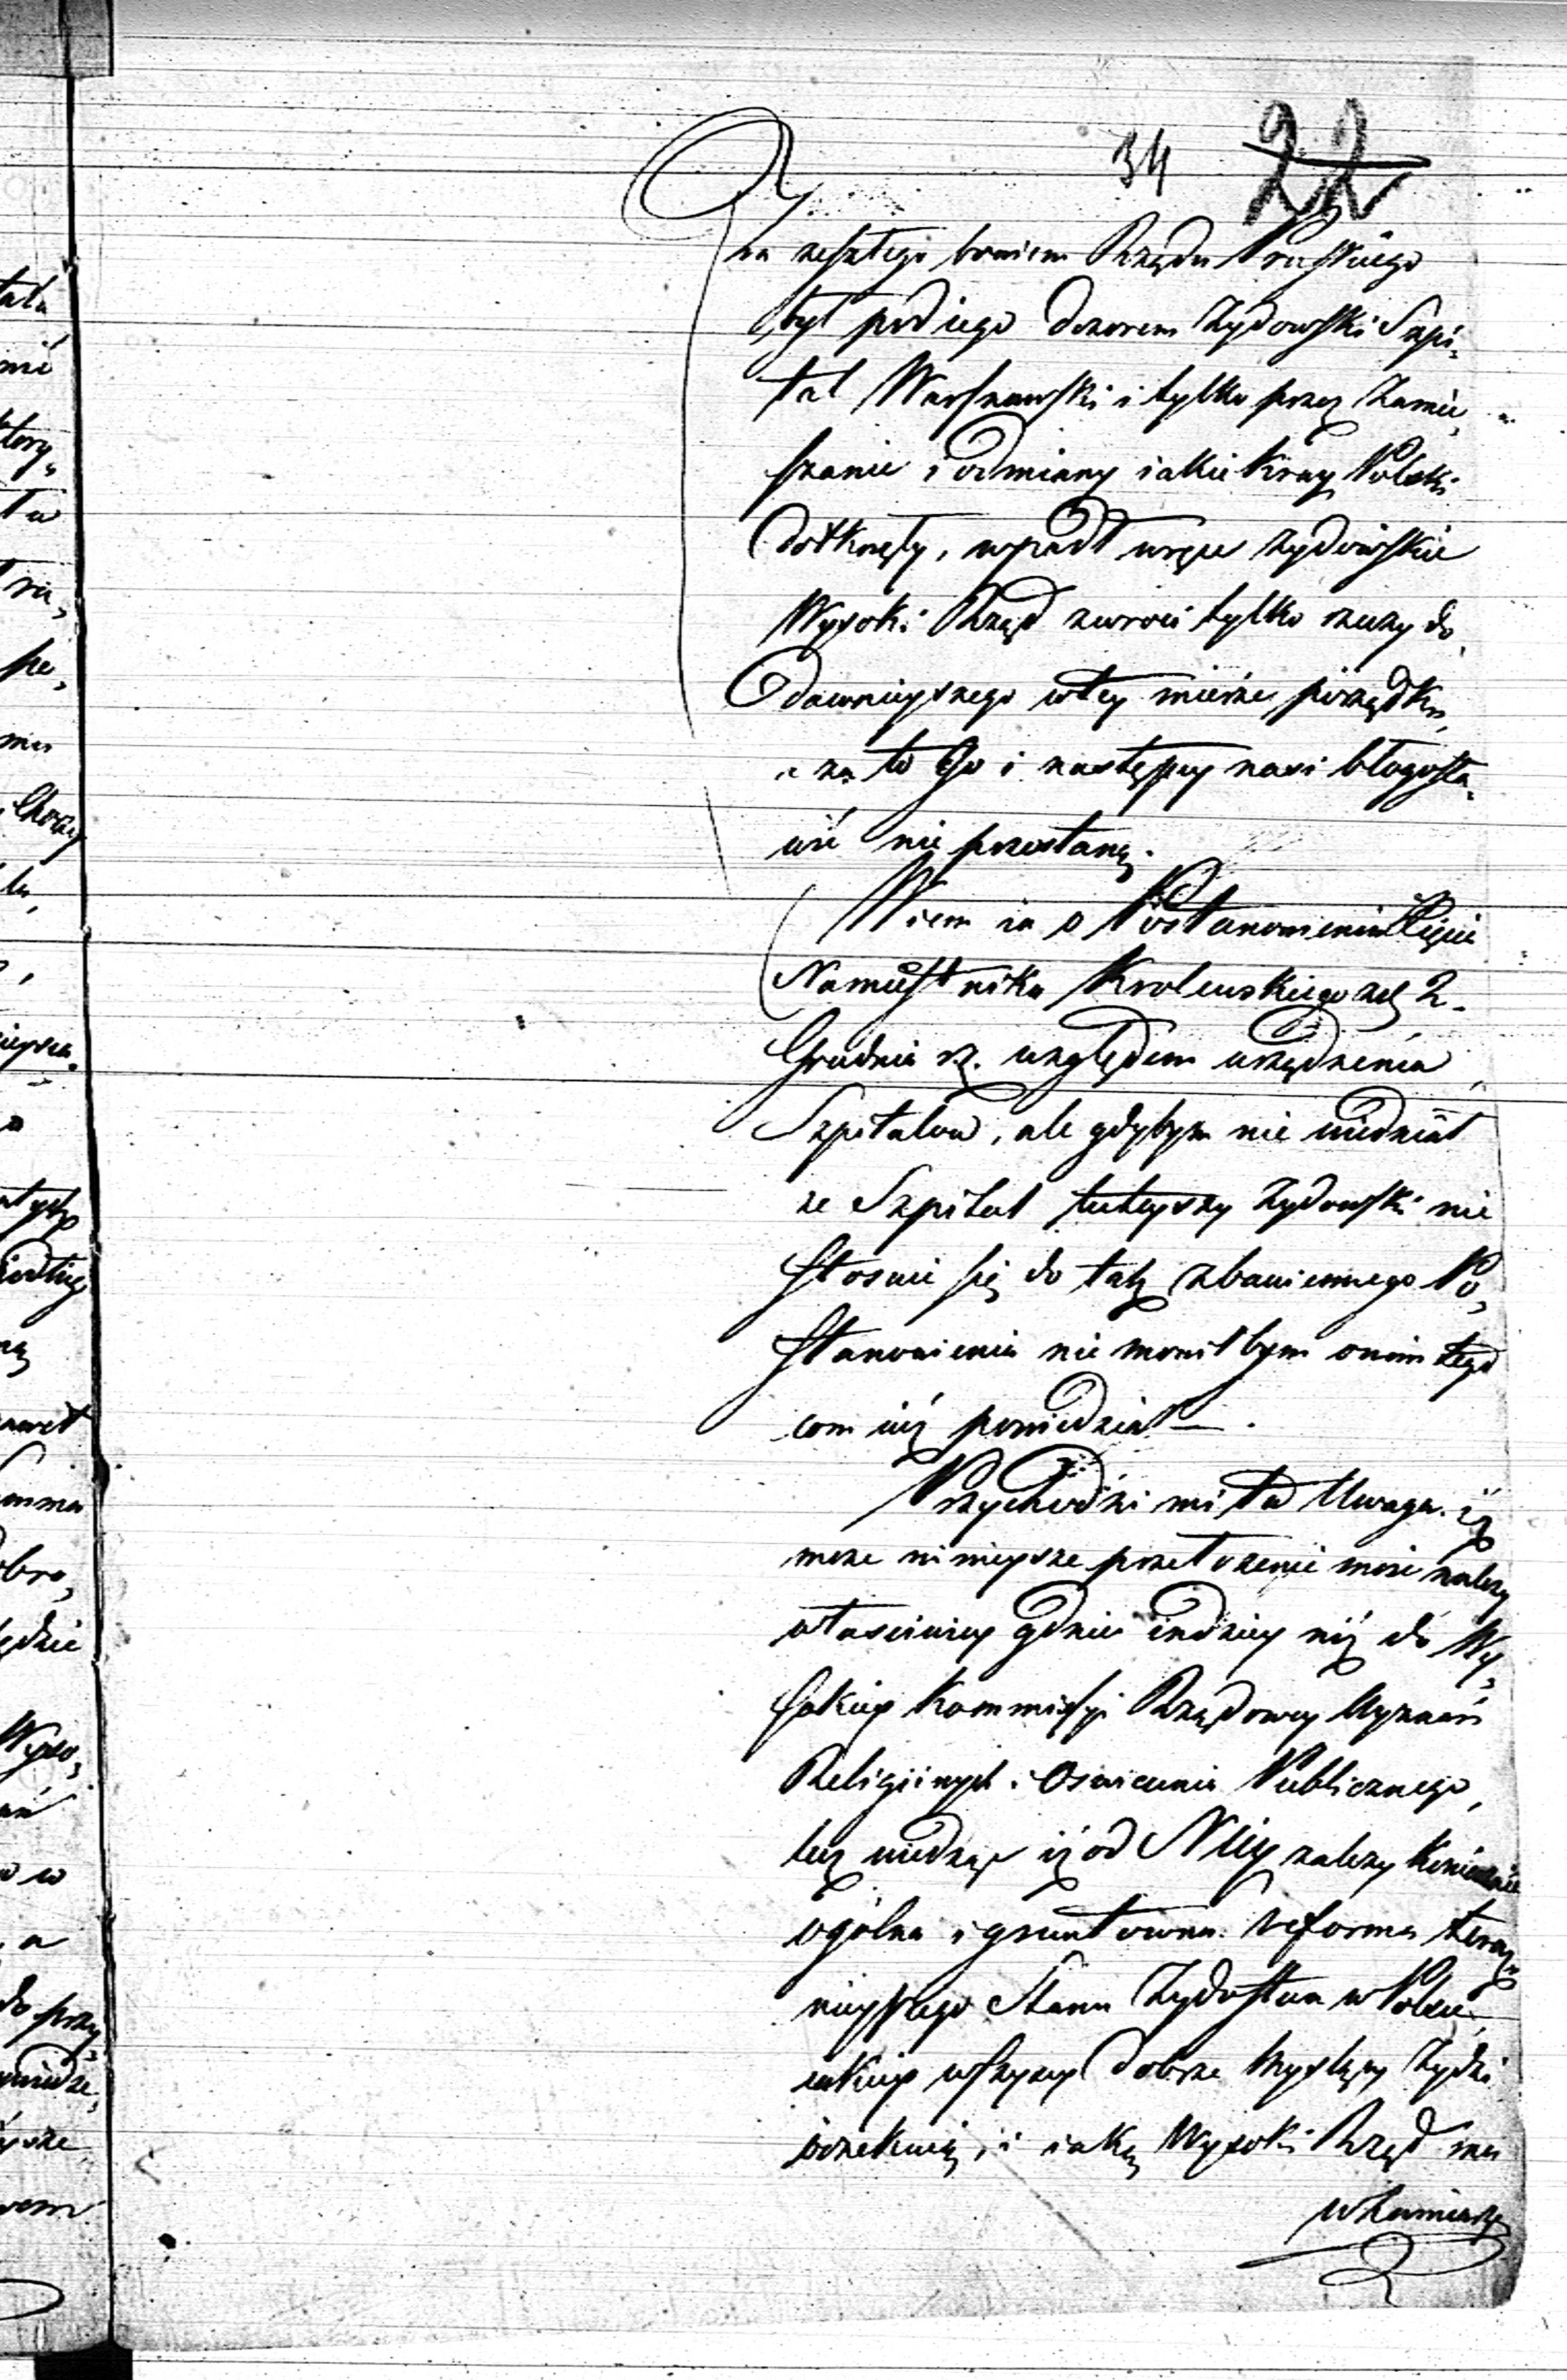 34 22
Za zeszłego bowiem Rządu Pruskiego
był pod iego dozorem Zydowski Szpi„
tal Warszawski i tylko przez Zamie„
szanie i odmiany iakie Kray Polski
dotknęły, wpadł w ręce żydowskie
Wysoki Rząd zwroci tylko rzeczy do
dawnieyszego w tey mierze porządku,
a za to Go i następcy nasi błogosła„
wić nie przestaną.
Wiem ia o Postanowieniu Xięcia
Namiestnika Krolewskiego z d. 2.
Grudnia r.z. względem urządzenia
Szpitalow, ale gdybym nie wiedział
ze Szpital tuteyszy Zydowski nie
stosuie się do tak zbawiennego Po„
stanowienia nie mowiłbym o nim tego
com iuż powiedział —.
Przychodzi mi ta Uwaga. iż
moze ninieysze przełozenie moie należy
właściwiey gdzie indziey niż do Wy„
sokiey Kommissyi Rządowey Wyznań
Religiinych i Oswiecenia Publicznego,
lecz wiedząc iż od Niey zalezy koniecznie
ogólna i gruntowna reforma teraz„
nieyszego Stanu Zydostwa w Polsce
iakiey wszyscy dobrze Myslący Zydzi
oczekuią, i iaką Wysoki Rząd ma
w Zamiarze
tala
nić
ktory„
ta
ra„
pe„
Chorzy
la,
wet
bro„
ędzie
Wyso„
a
do przy„
wiedze„
ysze
wem